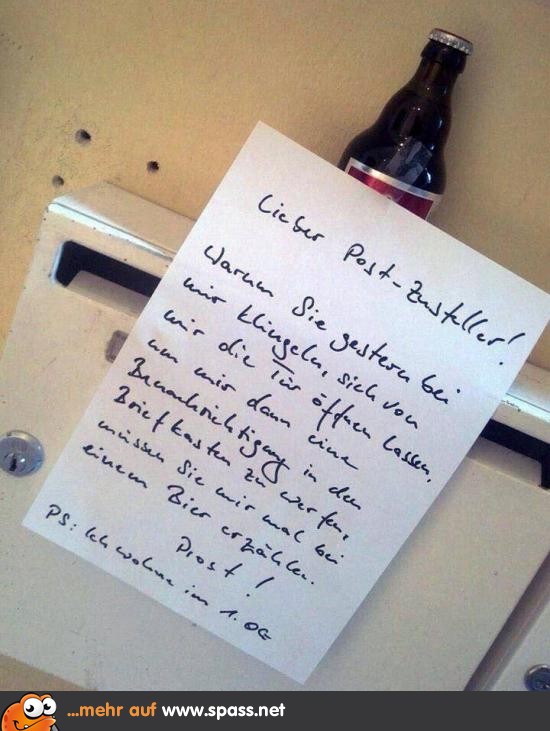 Lieber Post-Zusteller!
Warum Sie gestern bei
mir klingeln, sich von
mir die Tür öffnen lassen,
um mir dann eine
Benachrichtigung in den
Briefkasten zu werfen,
müssen Sie mir mal bei
einem Bier erzählen.
Prost!
PS: Ich wohne im 1. OG
...mehr auf www.spass.net